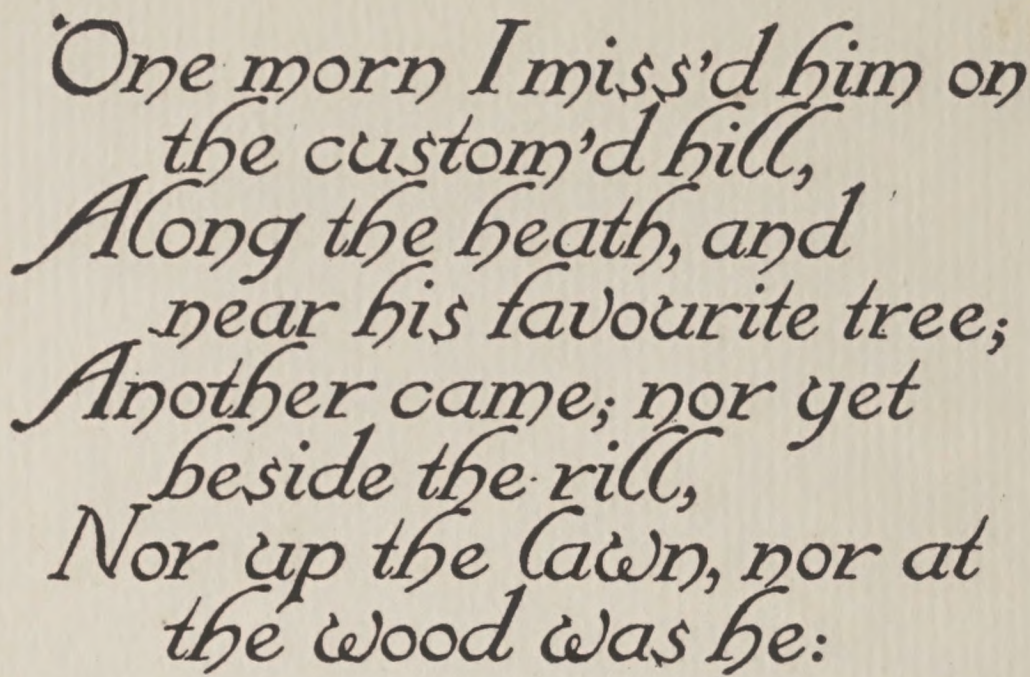 One morn I miss'd him on
the custom'd hill,
Along the heath, and
near his favourite tree;
Another came; nor yet
beside the rill,
Nor up the lawn, nor at
the wood was he: